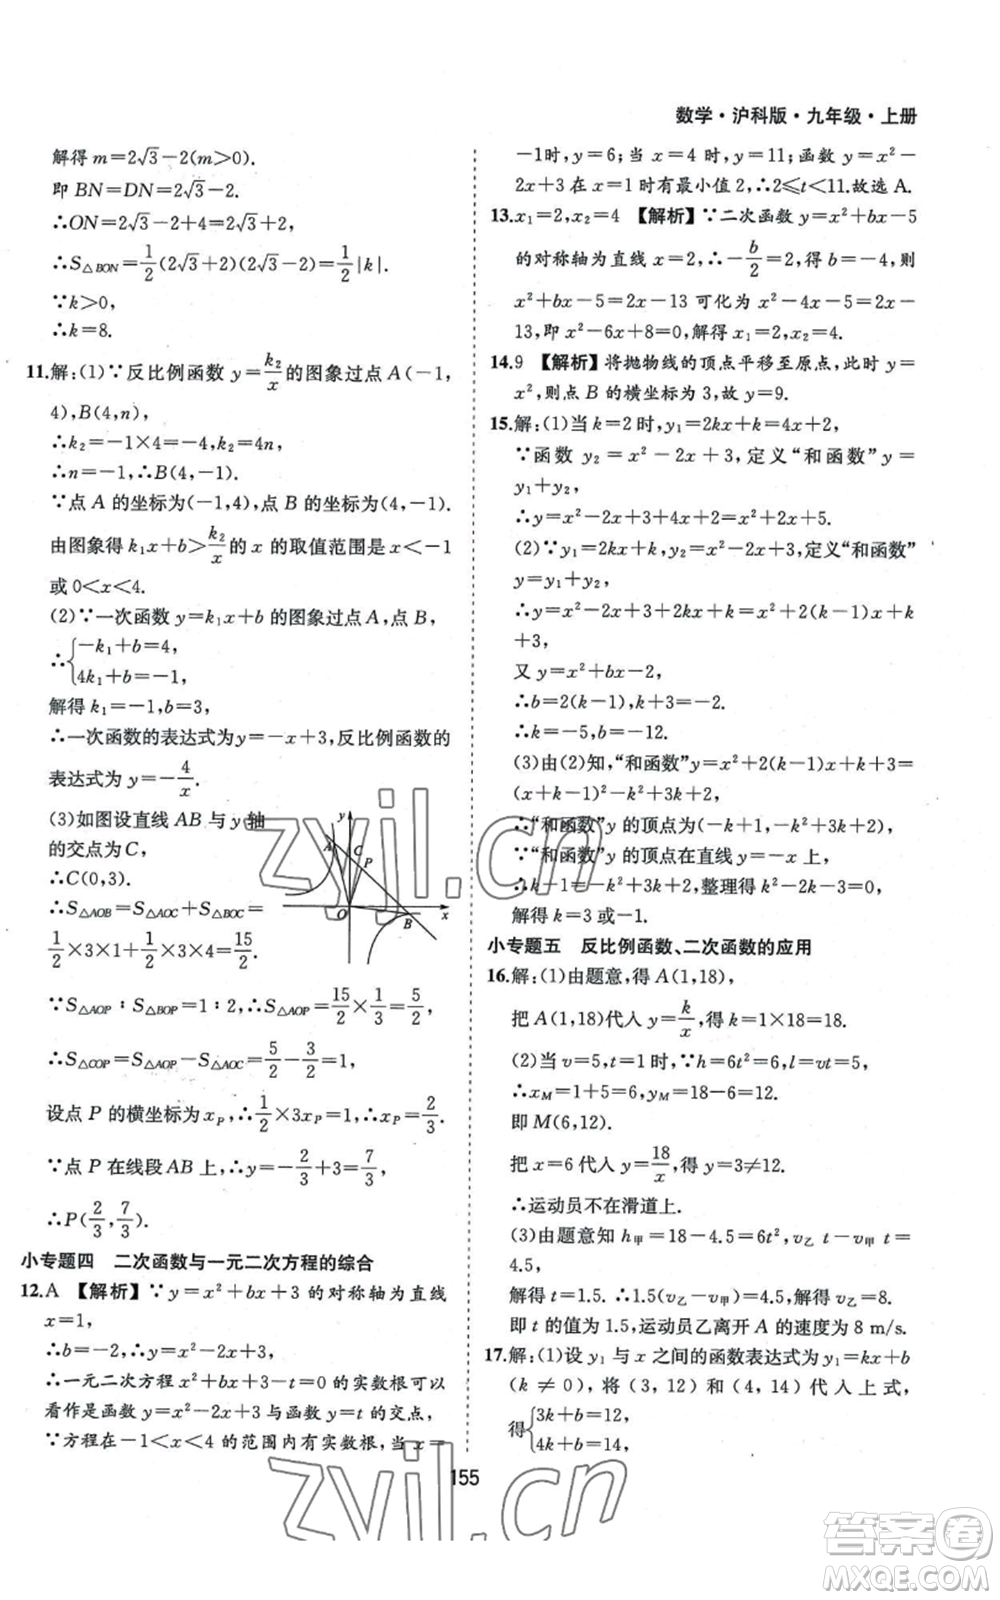 数学·沪科版·九年级·上册
解得 m=2√3-2(m>0).
即 BN=DN=2√3-2.
∴ON=2√3-2+4=2√3+2,
∴S△BON=1/2(2√3+2)(2√3-2)=1/2|k|.
∵k>0,
∴k=8.
11.解:(1)∵反比例函数 y=k₂/x的图象过点 A(-1,
4),B(4,n),
∴k₂=-1×4=-4,k₂=4n,
∴n=-1,∴B(4,-1).
∵点 A 的坐标为(-1,4),点 B 的坐标为(4,-1).
由图象得 k₁x+b>k₂/x的 x 的取值范围是 x<-1
或 0<x<4.
(2)∵一次函数 y=k₁x+b 的图象过点 A,点 B,
∴{-k₁+b=4,
4k₁+b=-1,
解得 k₁=-1,b=3,
∴一次函数的表达式为y=-x+3,反比例函数的
表达式为 y=-4/x.
(3)如图设直线 AB 与 y 轴
的交点为 C,
∴C(0,3).
∴S△AOB=S△AOC+S△BOC=
1/2×3×1+1/2×3×4=15/2.
y
A
C
P
O
B
x
∵S△AOP:S△BOP=1:2,∴S△AOP=15/2×1/3=5/2,
∴S△COP=S△AOP-S△AOC=5/2-3/2=1,
设点 P 的横坐标为 xP,∴1/2×3xP=1,∴xP=2/3.
∵点 P 在线段 AB 上,∴y=-2/3+3=7/3,
∴P(2/3,7/3).
小专题四 二次函数与一元二次方程的综合
12.A 【解析】∵y=x²+bx+3 的对称轴为直线
x=1,
∴b=-2,∴y=x²-2x+3,
∴一元二次方程 x²+bx+3-t=0 的实数根可以
看作是函数 y=x²-2x+3 与函数 y=t 的交点,
∵方程在-1<x<4 的范围内有实数根,当 x=
-1时,y=6;当 x=4 时,y=11;函数 y=x²-
2x+3 在 x=1 时有最小值 2,∴2≤t<11.故选 A.
13.x₁=2,x₂=4 【解析】∵二次函数 y=x²+bx-5
的对称轴为直线 x=2,∴-b/2=2,得 b=-4,则
x²+bx-5=2x-13 可化为 x²-4x-5=2x-
13,即 x²-6x+8=0,解得 x₁=2,x₂=4.
14.9 【解析】将抛物线的顶点平移至原点,此时 y=
x²,则点 B 的横坐标为 3,故 y=9.
15.解:(1)当 k=2 时,y₁=2kx+k=4x+2,
∵函数 y₂=x²-2x+3,定义“和函数”y=
y₁+y₂,
∴y=x²-2x+3+4x+2=x²+2x+5.
(2)∵y₁=2kx+k,y₂=x²-2x+3,定义“和函数”
y=y₁+y₂,
∴y=x²-2x+3+2kx+k=x²+2(k-1)x+k
+3,
又 y=x²+bx-2,
∴b=2(k-1),k+3=-2,
∴k=-5,b=-12.
(3)由(2)知,“和函数”y=x²+2(k-1)x+k+3=
(x+k-1)²-k²+3k+2,
∴“和函数”y 的顶点为(-k+1,-k²+3k+2),
∵“和函数”y 的顶点在直线 y=-x 上,
∴k-1=-k²+3k+2,整理得 k²-2k-3=0,
解得 k=3 或-1.
小专题五 反比例函数、二次函数的应用
16.解:(1)由题意,得 A(1,18),
把 A(1,18)代入 y=k/x,得 k=1×18=18.
(2)当 v=5,t=1 时,∵h=6t²=6,l=vt=5,
∴xM=1+5=6,yM=18-6=12.
即 M(6,12).
把 x=6 代入 y=18/x,得 y=3≠12.
∴运动员不在滑道上.
(3)由题意知 h甲=18-4.5=6t²,v乙 t-v甲 t=
4.5,
解得 t=1.5. ∴1.5(v乙-v甲)=4.5,解得 v乙=8.
即 t 的值为 1.5,运动员乙离开 A 的速度为 8 m/s.
17.解:(1)设 y₁ 与 x 之间的函数表达式为 y₁=kx+b
(k≠0),将 (3,12) 和 (4,14) 代入上式,
得{3k+b=12,
4k+b=14,
155
zyjl.cn
zyjl.cn
答案圈
MXQE.COM